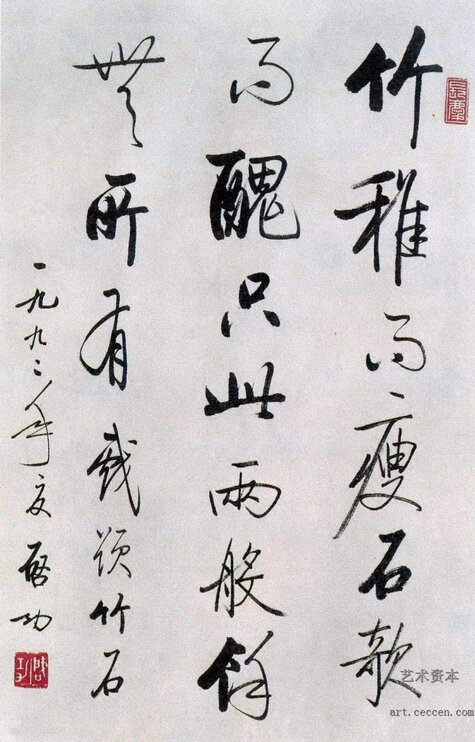 竹稚而瘦石欹
而醜只此兩般餘
無所有戲題竹石
一九九二年夏啓功
艺术资本
art.ceccen.com